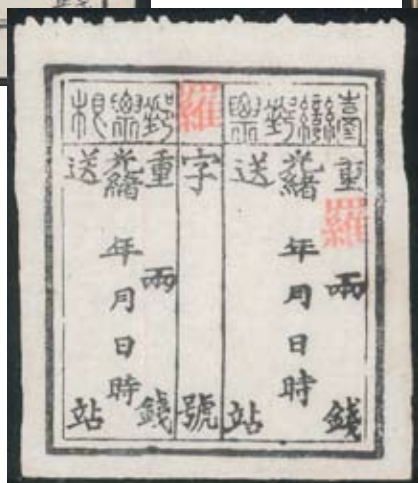 臺灣郵票
重 兩 錢
羅
光緒 年月日時
送 站
羅
字 號
郵票根
重 兩 錢
光緒 年月日時
送 站